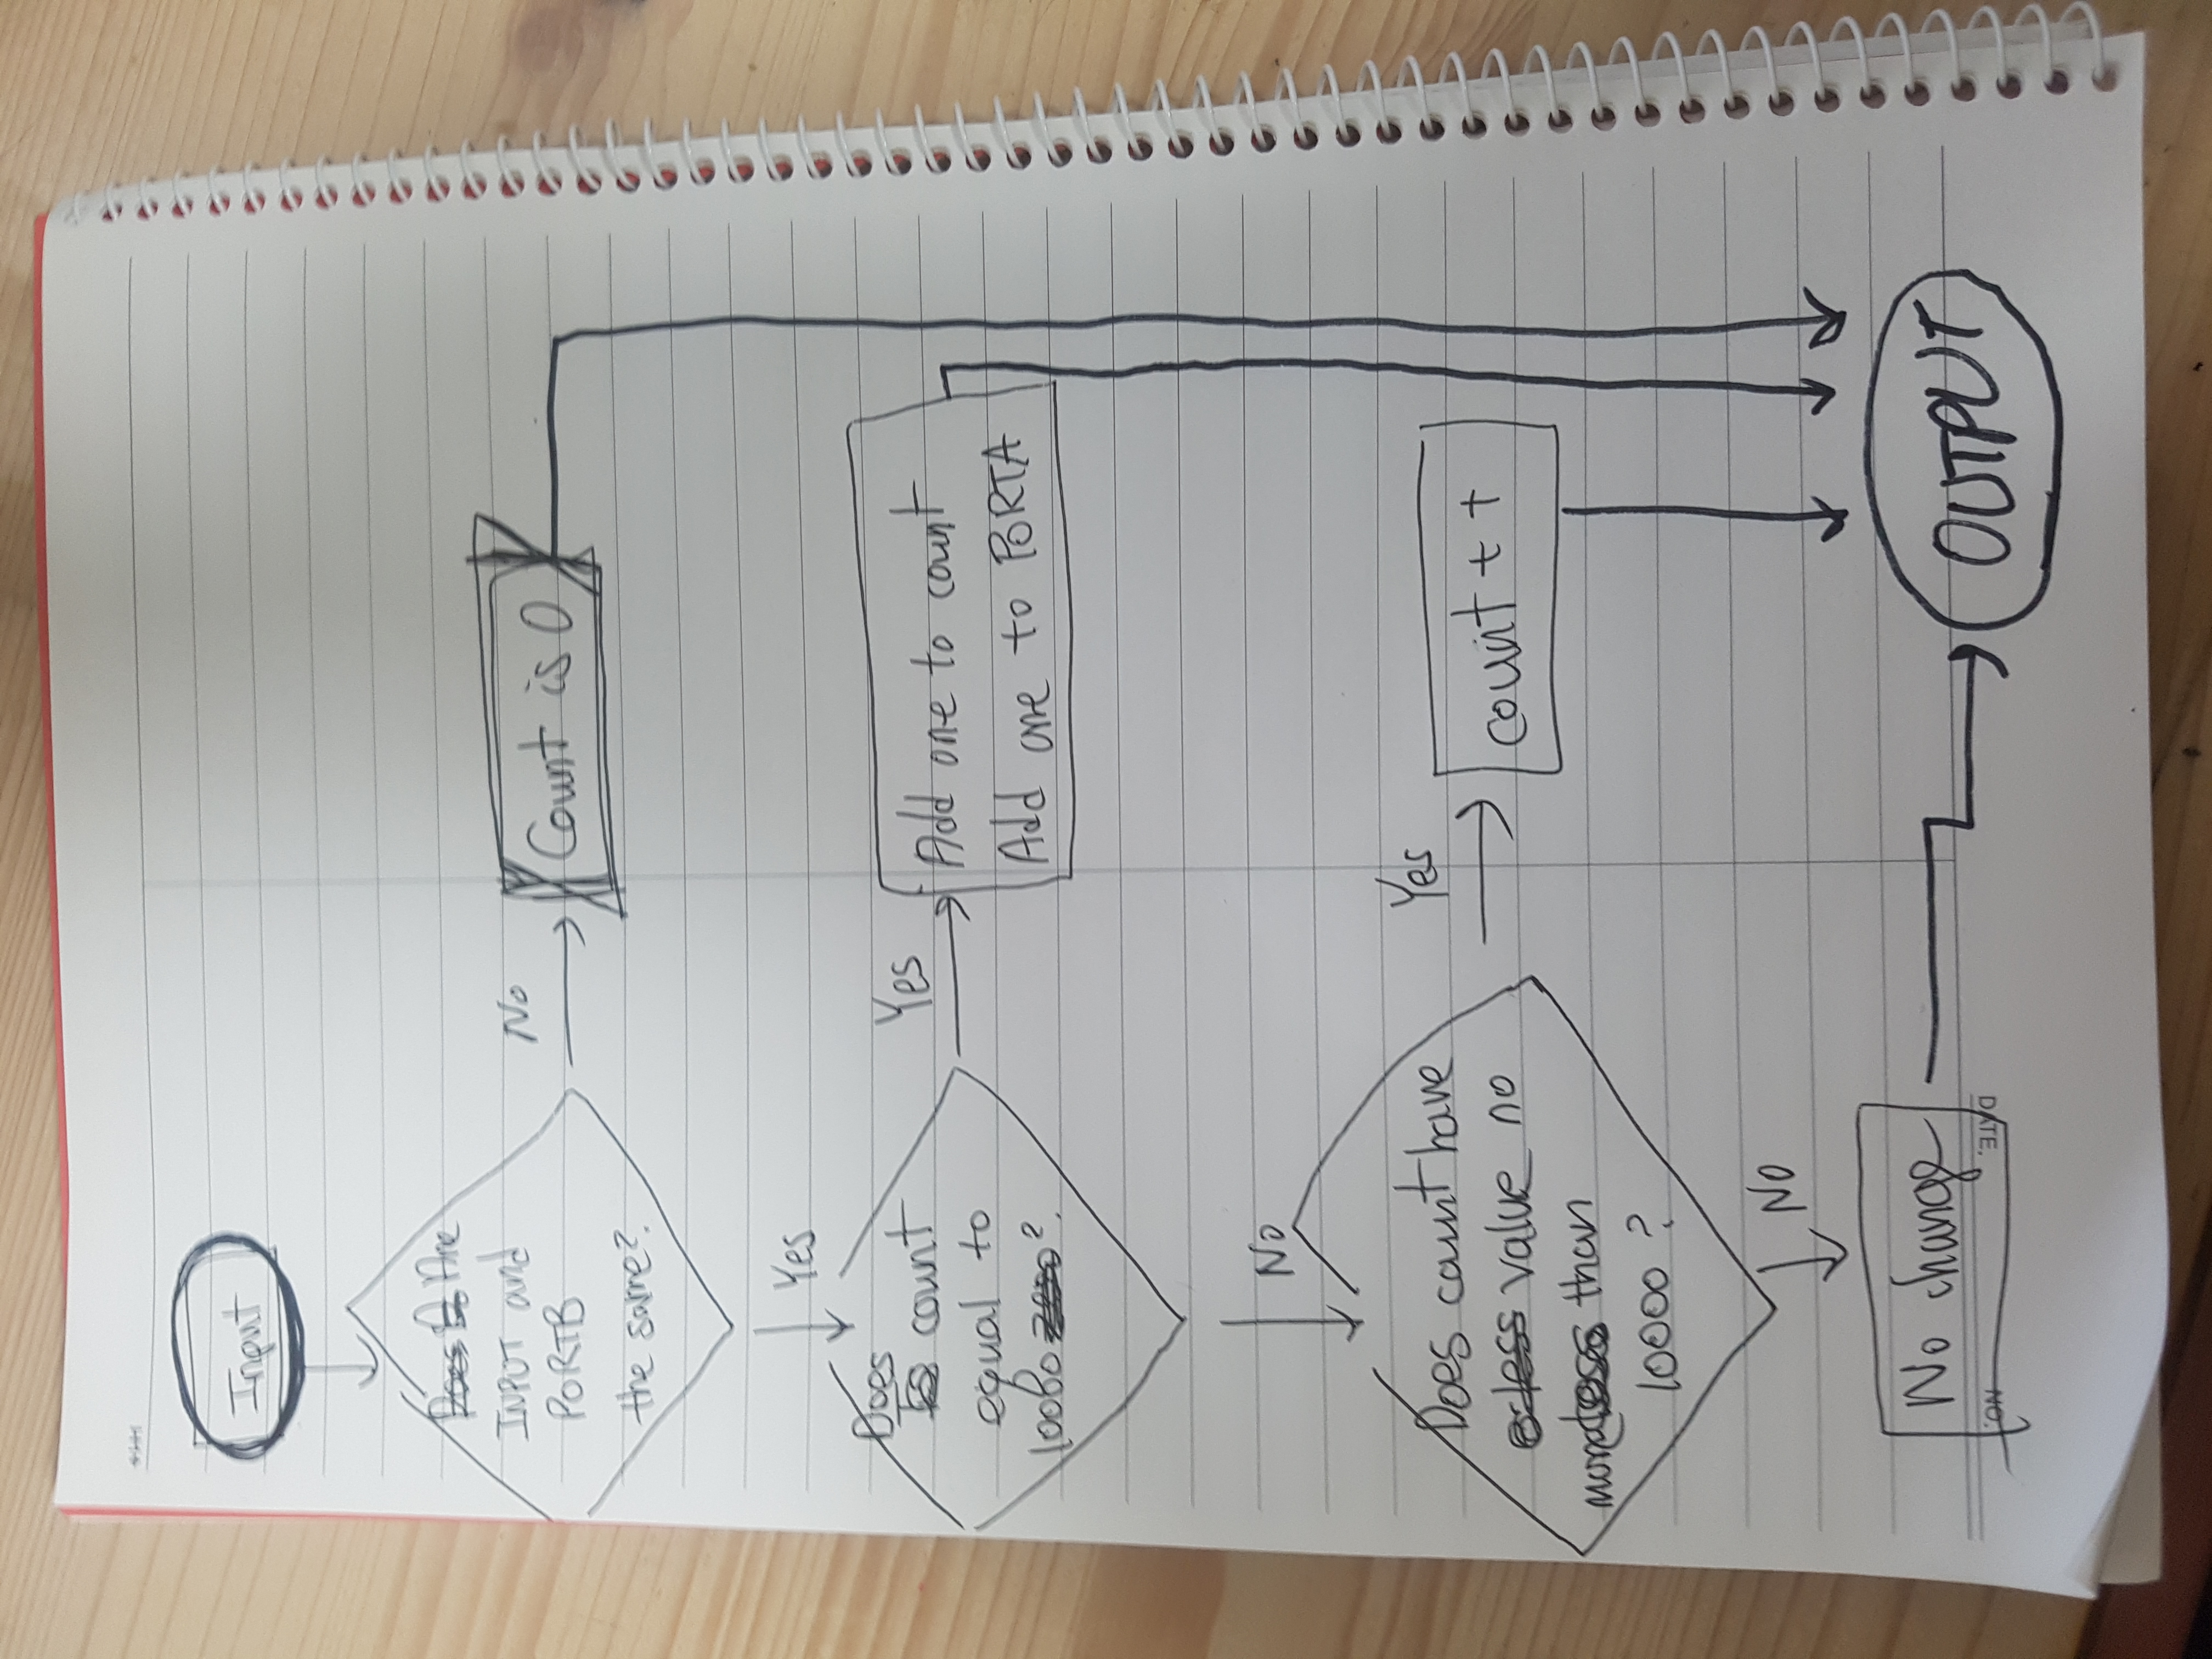 Input
Does Are
INPUT and
PORTB
the same?
No
Count is 0
Yes
Does
Is count
equal to
10000 zero?
Yes
Add one to count
Add one to PORTA
No
Does count have
value no
more than
10000 ?
Yes
count ++
NO
No change
NO.
DATE.
OUTPUT